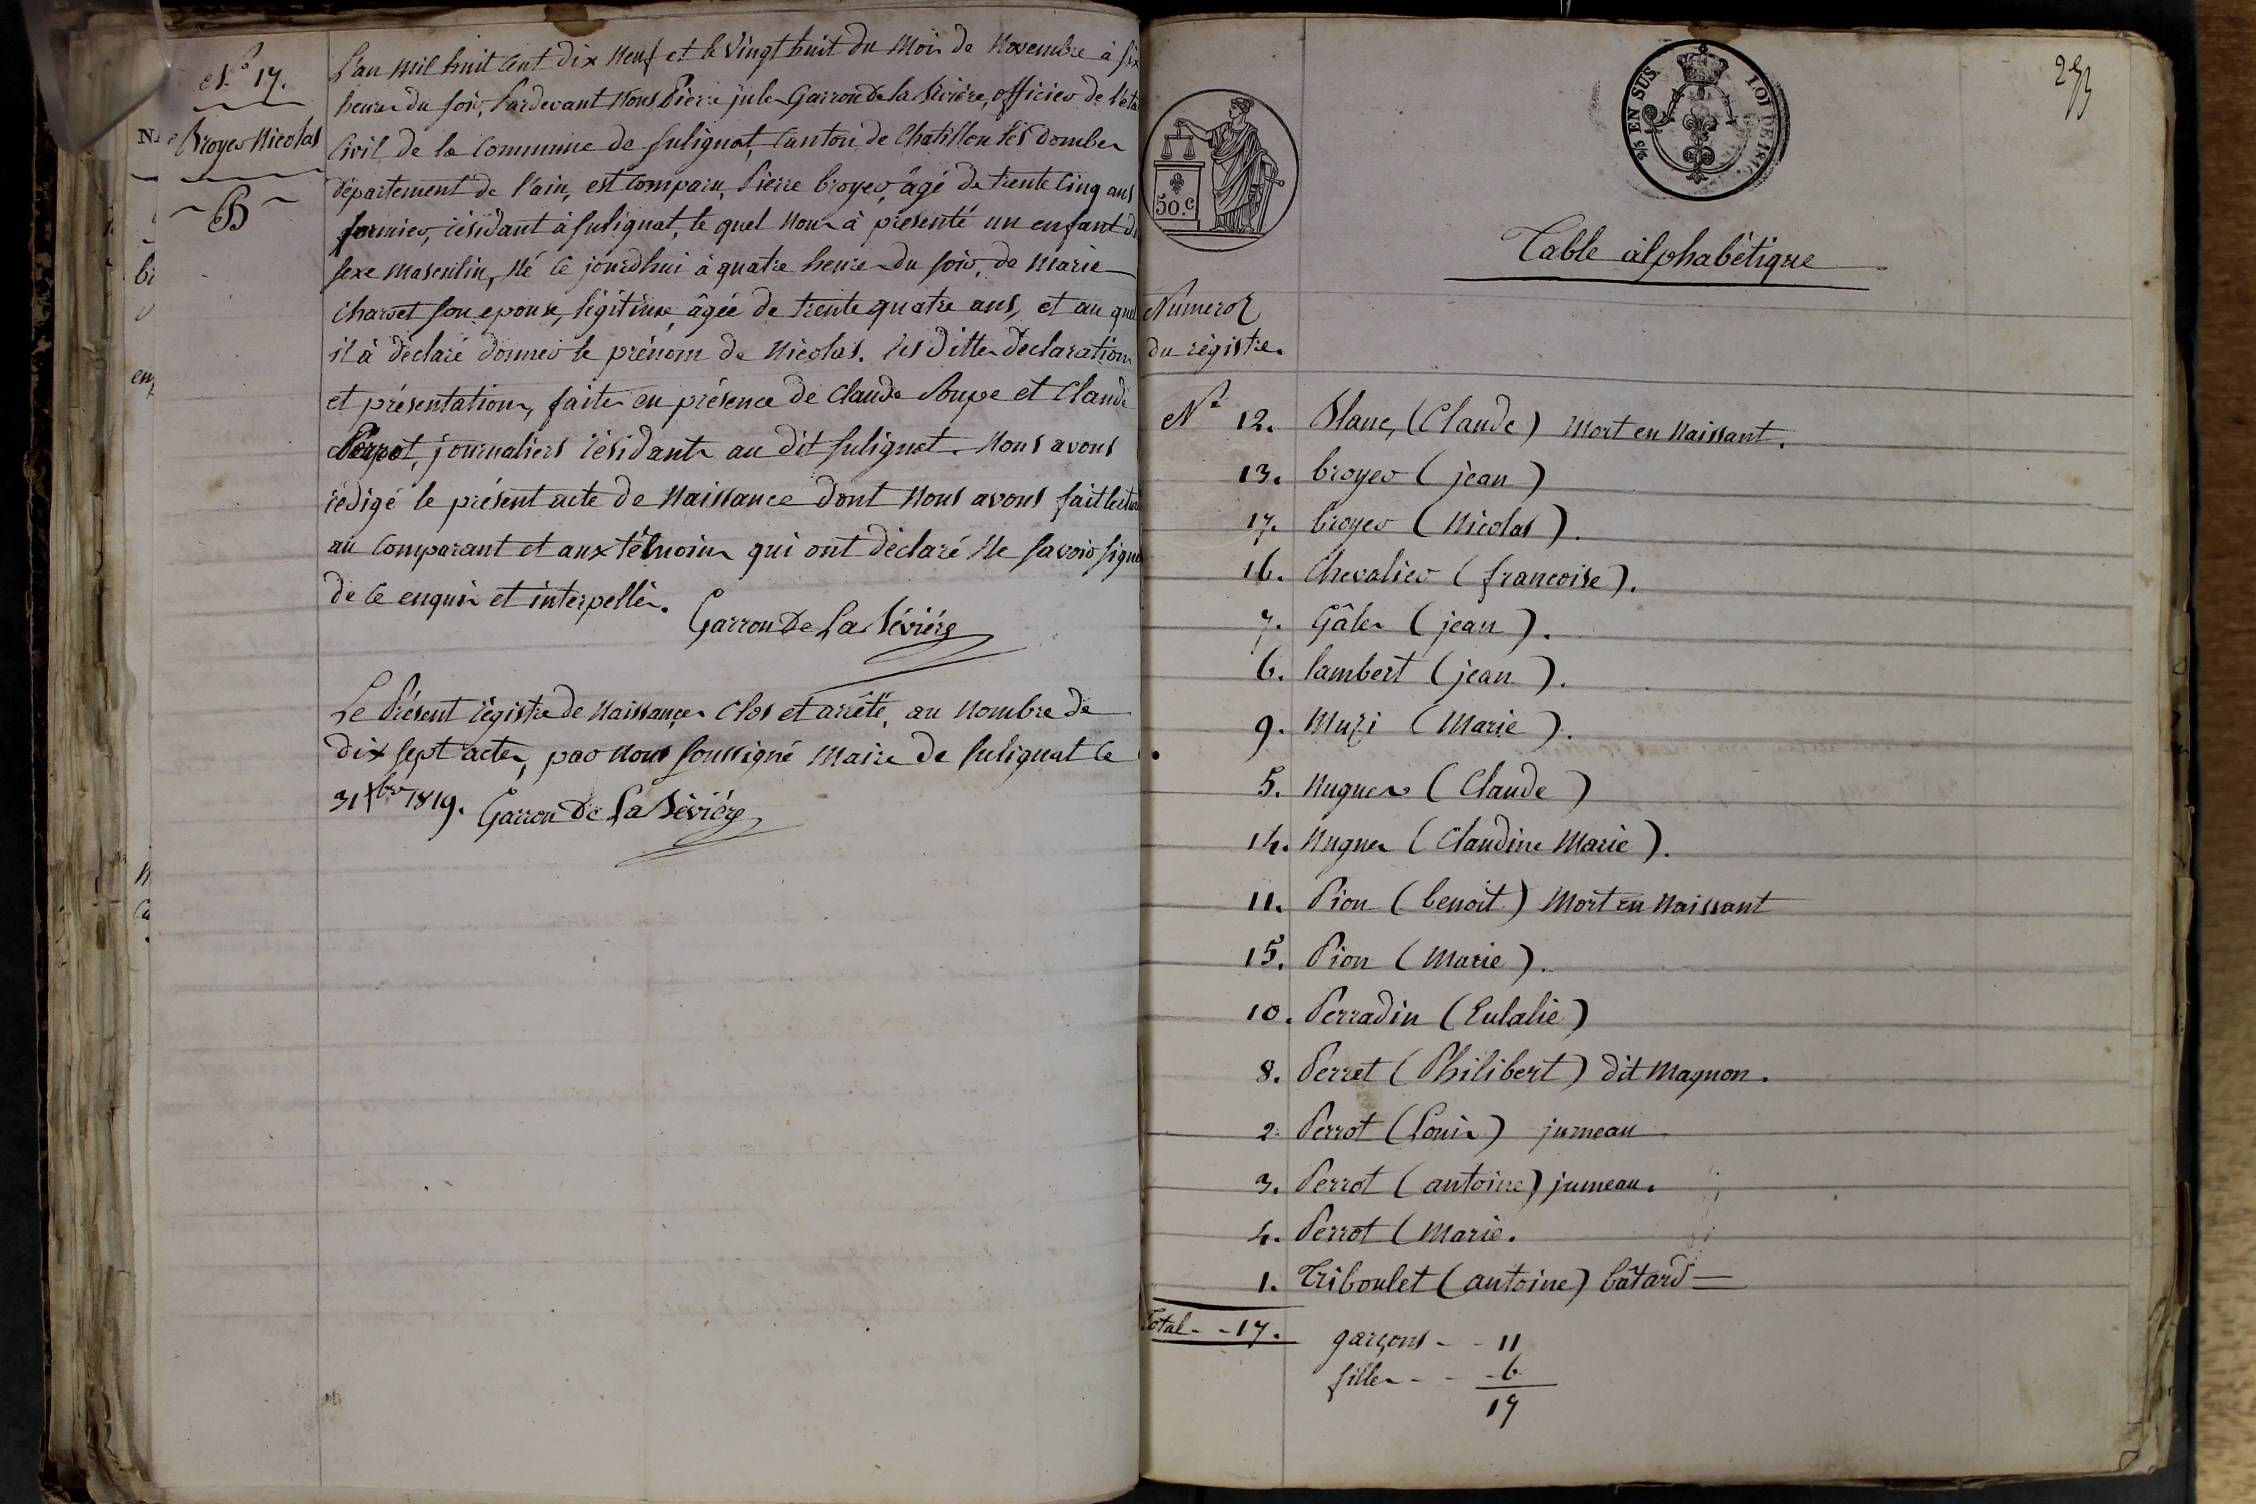 N.o 17.
Broyer Nicolas
B
L'an mil huit cent dix neuf et le vingt huit du mois de Novembre à six
heures du soir, Pardevant Nous Pierre jules Garron de la Sévière, officier de l'éta
Civil de la Commune de Sulignat, Canton de Chatillon lès dombes
département de l'ain, est comparu, Pierre broyer, âgé de trente cinq ans
fermier, résidant à Sulignat, le quel Nous à présenté un enfant d
sexe masculin, Né ce jourdhui à quatre heures du soir, de Marie
Charvet son epouse, légitime, âgée de trente quatre ans, et au quel
il à déclaré donner le prénom de Nicolas. les dittes déclarations
et présentations, faites en présence de Claude Soupe et Claude
Perrot, journaliers résidants au dit Sulignat. Nous avons
rédigé le présent acte de Naissance dont Nous avons fait lectur
au Comparant et aux témoins qui ont déclaré Ne savoir signe
de ce enquis et interpellés.
Garron De La Sévière
Le Présent régistre de Naissances Clos et arrêté, au Nombre de
dix sept actes, par Nous soussigné Maire de Sulignat ce
31 Xbre 1819. Garron De La Sévière
2/5 EN SUS. LOI DE 1816.
50.c
Table alphabétique
Numeros
du régistre.
No 12. Blanc, (Claude) Mort en Naissant.
13. broyer (jean)
17. broyer (Nicolas).
16. Chevalier (francoise).
7. Gâles (jean).
6. lambert (jean).
9. Muzi (Marie).
5. Nugues (Claude)
14. Nugues (Claudine Marie).
11. Pion (benoit) Mort en Naissant
15. Pion (Marie).
10. Perradin (Eulalie)
8. Perret (Philibert) dit Magnon.
2. Perrot (Louis) jumeau
3. Perrot (antoine) jumeau.
4. Perrot (Marie.
1. Triboulet (antoine) bâtard
Total - - 17.
garçons - - 11
filles - - - 6
17